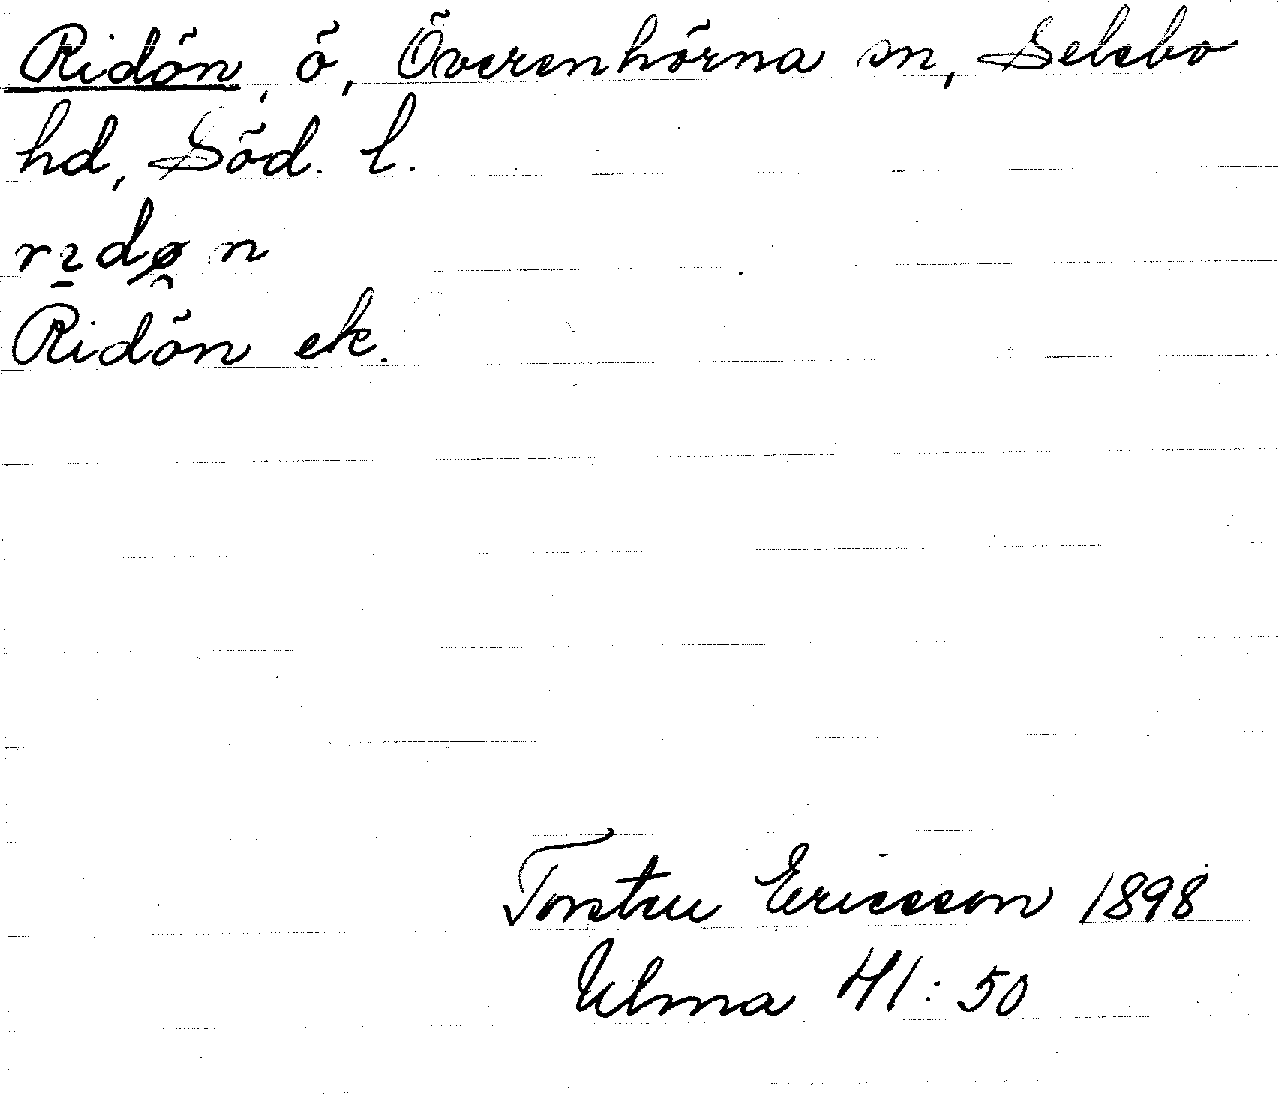 Ridön, ö, Överenhörna sn, Selebo
hd, Söd. l.
rɪ̱dø̯̂n
Ridön ek.
Torsten Ericsson 1898
Ulma 41:50